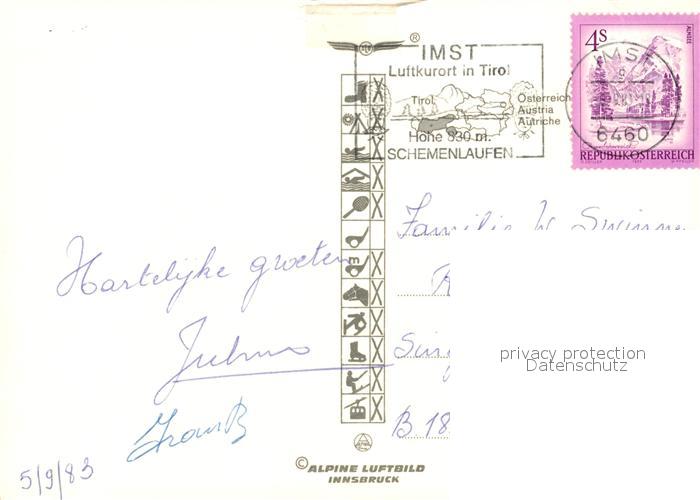 ®
IMST
Luftkurort in Tirol
Tirol
Österreich
Austria
Autriche
Höhe 830 m.
SCHEMENLAUFEN
4 S
ALMSEE
IMST
6460
REPUBLIK ÖSTERREICH
Familie W
Hartelijke groeten
B 18
privacy protection
Datenschutz
5/9/83
© ALPINE LUFTBILD
INNSBRUCK